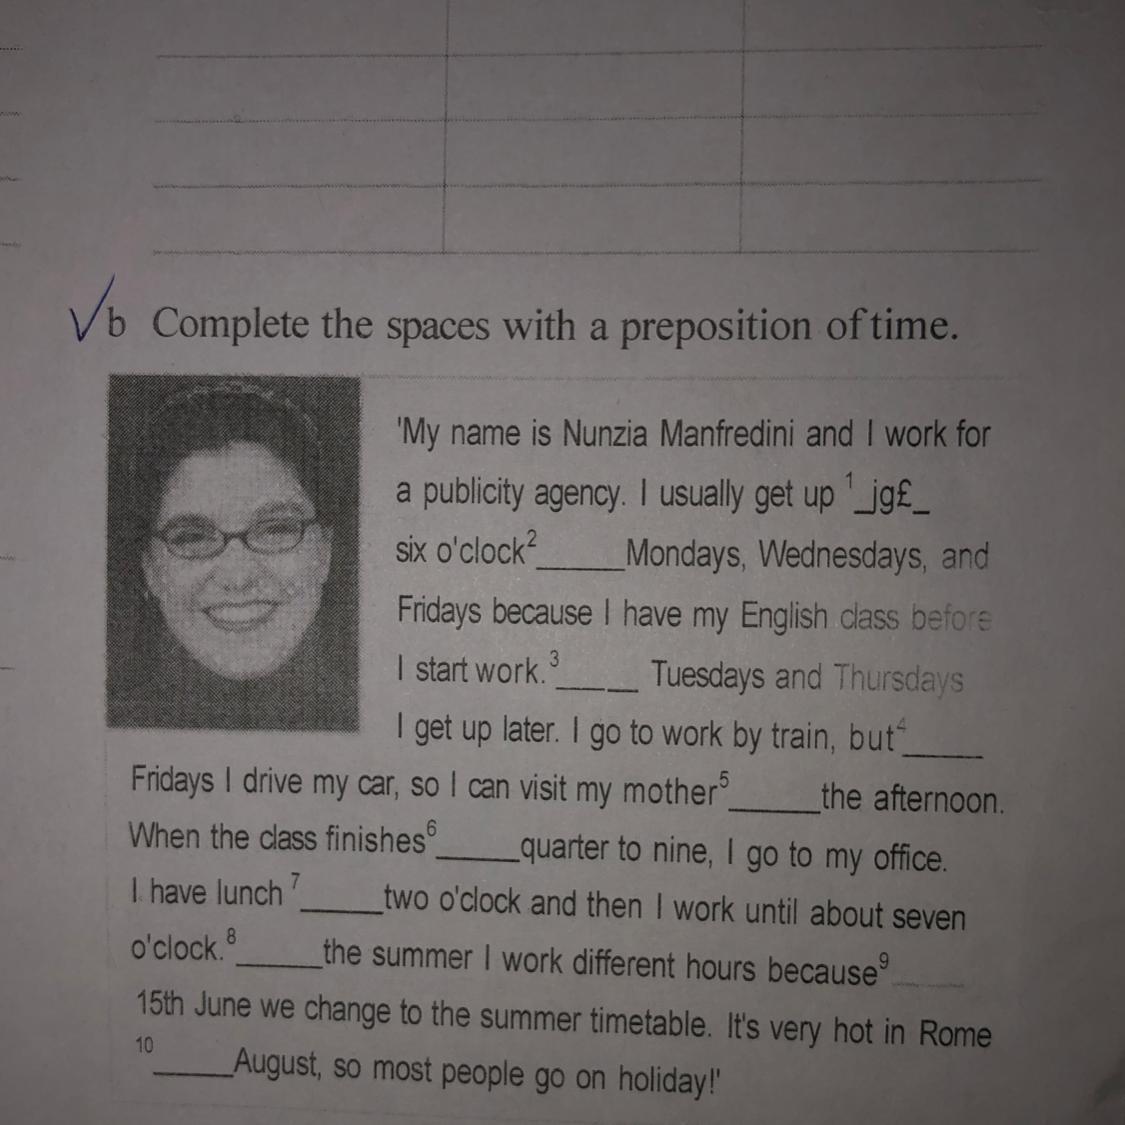 b Complete the spaces with a preposition of time.
'My name is Nunzia Manfredini and I work for
a publicity agency. I usually get up ¹_jg£_
six o'clock²_____Mondays, Wednesdays, and
Fridays because I have my English class before
I start work.³_____ Tuesdays and Thursdays
I get up later. I go to work by train, but⁴_____
Fridays I drive my car, so I can visit my mother⁵_____the afternoon.
When the class finishes⁶_____quarter to nine, I go to my office.
I have lunch ⁷_____two o'clock and then I work until about seven
o'clock.⁸_____the summer I work different hours because⁹_____
15th June we change to the summer timetable. It's very hot in Rome
¹⁰_____August, so most people go on holiday!'